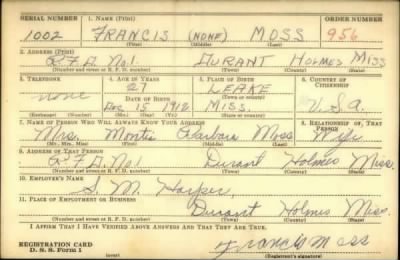 SERIAL NUMBER 1. NAME (Print) ORDER NUMBER
1002 FRANCIS (NONE) MOSS 956
(First) (Middle) (Last)
2. ADDRESS (Print)
R.F.D. No 1. DURANT HOLMES MISS
(Number and street or R. F. D. number) (Town) (County) (State)
3. TELEPHONE 4. AGE IN YEARS 5. PLACE OF BIRTH 6. COUNTRY OF CITIZENSHIP
none 27 LEAKE
DATE OF BIRTH (Town or county)
DEC 15 1912 MISS. U.S.A
(Exchange) (Number) (Mo.) (Day) (Yr.) (State or country)
7. NAME OF PERSON WHO WILL ALWAYS KNOW YOUR ADDRESS 8. RELATIONSHIP OF THAT PERSON
Mrs. Moss Wife
(Mr., Mrs., Miss) (First) (Middle) (Last)
9. ADDRESS OF THAT PERSON
R.F.D. No 1 Durant Holmes Miss.
(Number and street or R. F. D. number) (Town) (County) (State)
10. EMPLOYER'S NAME
S. M. Harper
11. PLACE OF EMPLOYMENT OR BUSINESS
Durant Holmes Miss.
(Number and street or R. F. D. number) (Town) (County) (State)
I AFFIRM THAT I HAVE VERIFIED ABOVE ANSWERS AND THAT THEY ARE TRUE.
Francis Moss
REGISTRATION CARD
D. S. S. Form 1 (Registrant's signature)